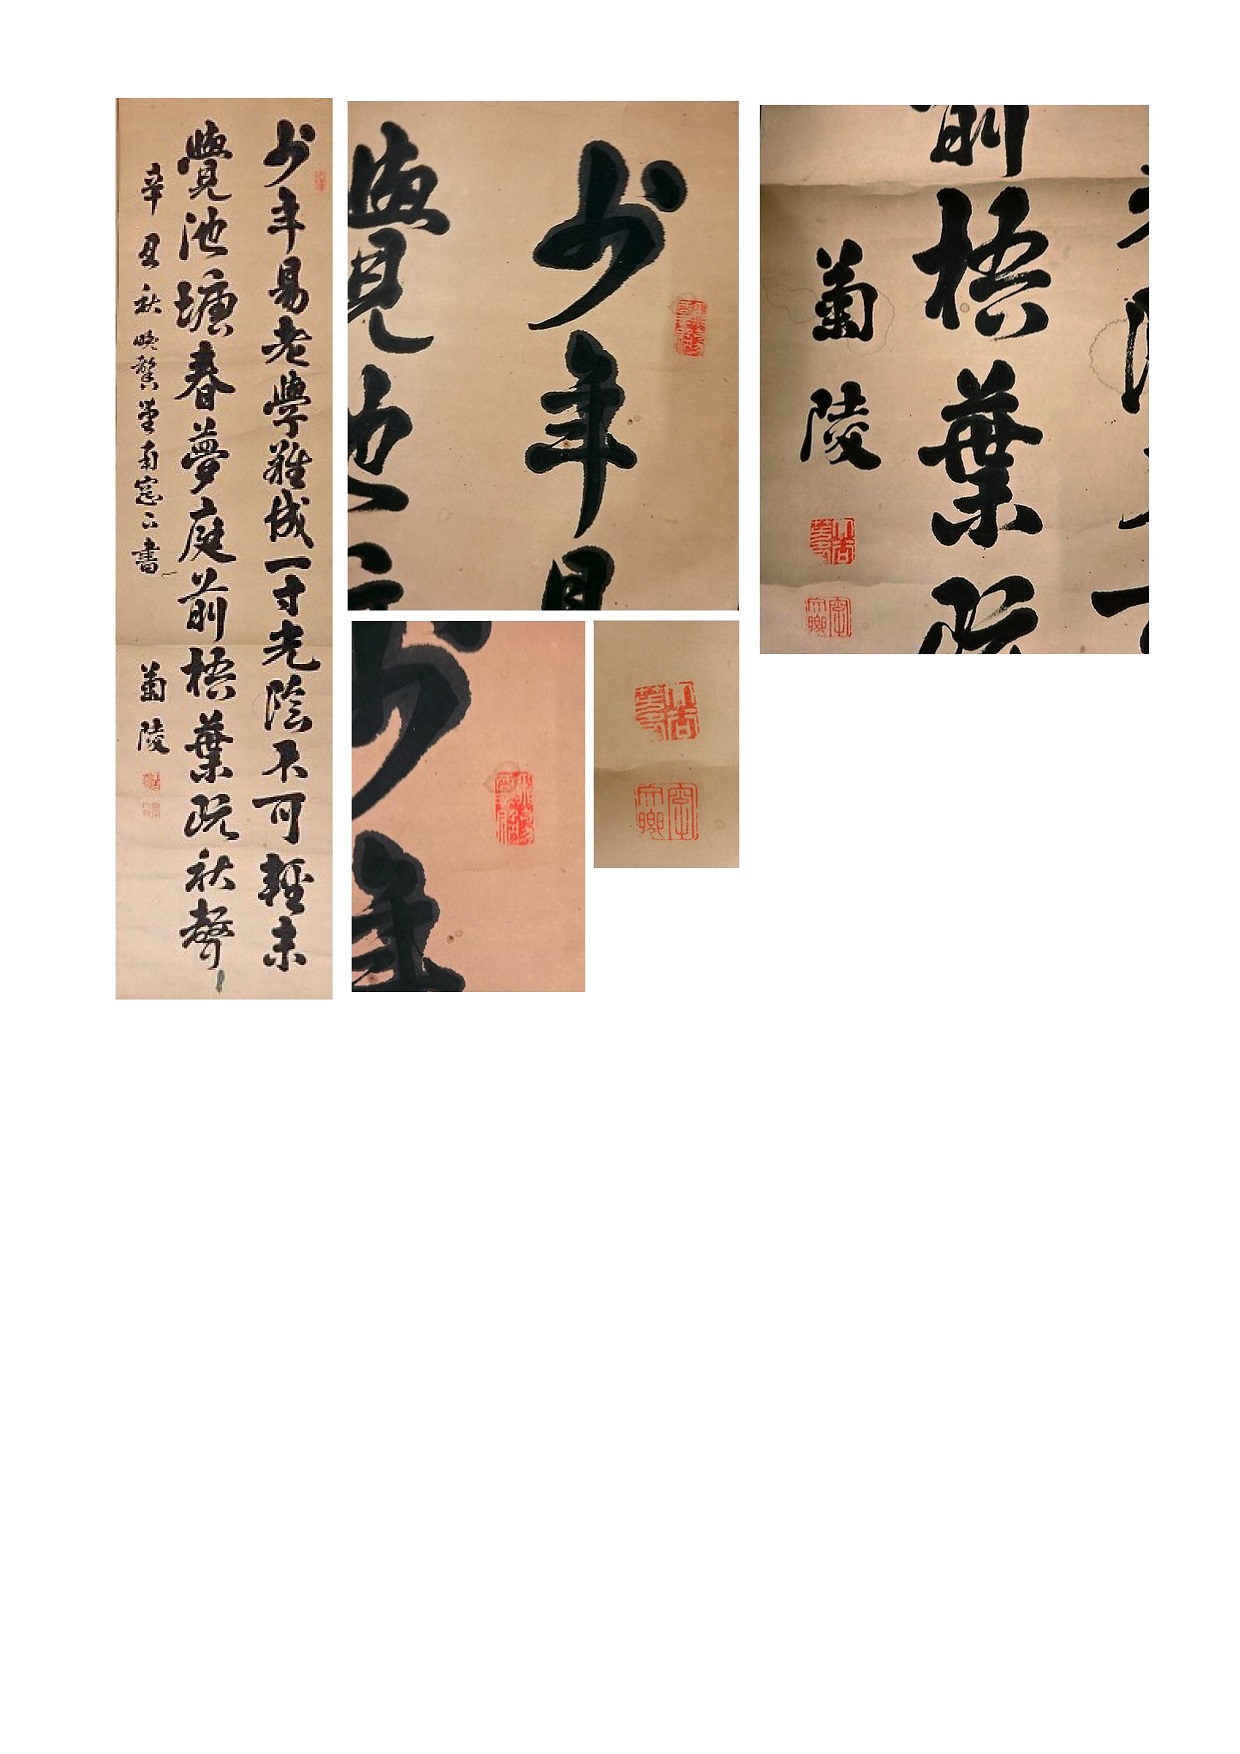 少年易老學難成一寸光陰不可輕未
覺池塘春夢庭前梧葉既秋聲
辛丑秋晩 堂南窓下書 菊陵
覺池
少年易
前梧葉既
菊陵
少年